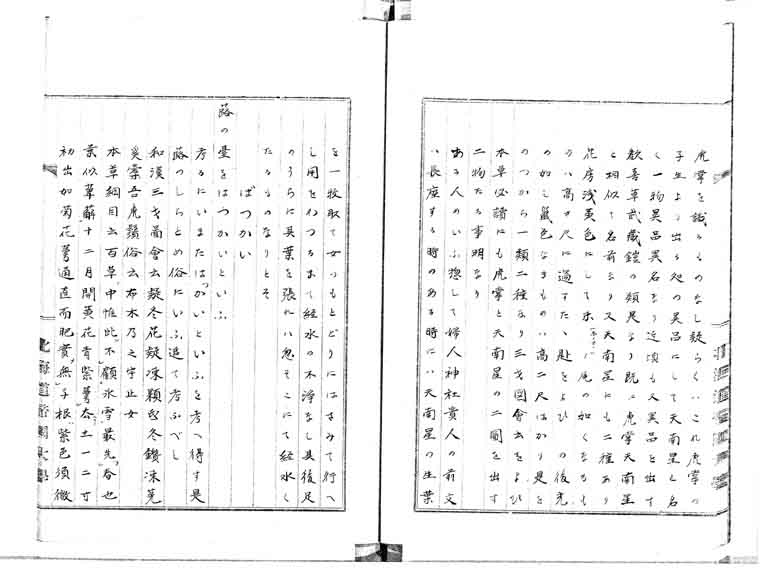 虎掌を識るものなし疑らくハこれ虎掌の
子生より出る処の異品にして天南星と名
く一物異品異名なり近頃も又異品を出す
歓喜草武蔵鐙の類是なり既ニ虎掌天南星
と相似て名前なり又天南星にも二種あり
花房浅黄色にして
の如し最色なきものハ高二尺はかり是を
のつから一類二種なり三才図會云をよひ
本草必讀にも虎掌と天南星の二圖を出す
二物たる事明なり
ある人のいふ惣して婦人神社貴人の前又
ハ長座する時のある時にハ天南星の生葉
を一枚取て女のもとどりにはさみて行へ
し用をわつるまて経水の不浄なし其後足
のうらに其葉を張れハ忽そこにて経水く
たるものなりとそ
ばつかい
蕗の薹をはつかいといふ
考るにいまたはつかいといふを考へ得す是
蕗のしらとめ俗にいふ追て考ふべし
和漢三才圖會云款冬花款凍顆凍氐冬鑽凍菟
奚橐吾虎鬚俗云布木乃之宇止女
本草綱目云百草中惟此不顧氷雪最先春也
葉似萆薢十二月開黄花青紫萼去土一二寸
初出如菊花萼通直而肥實無子根紫色須微